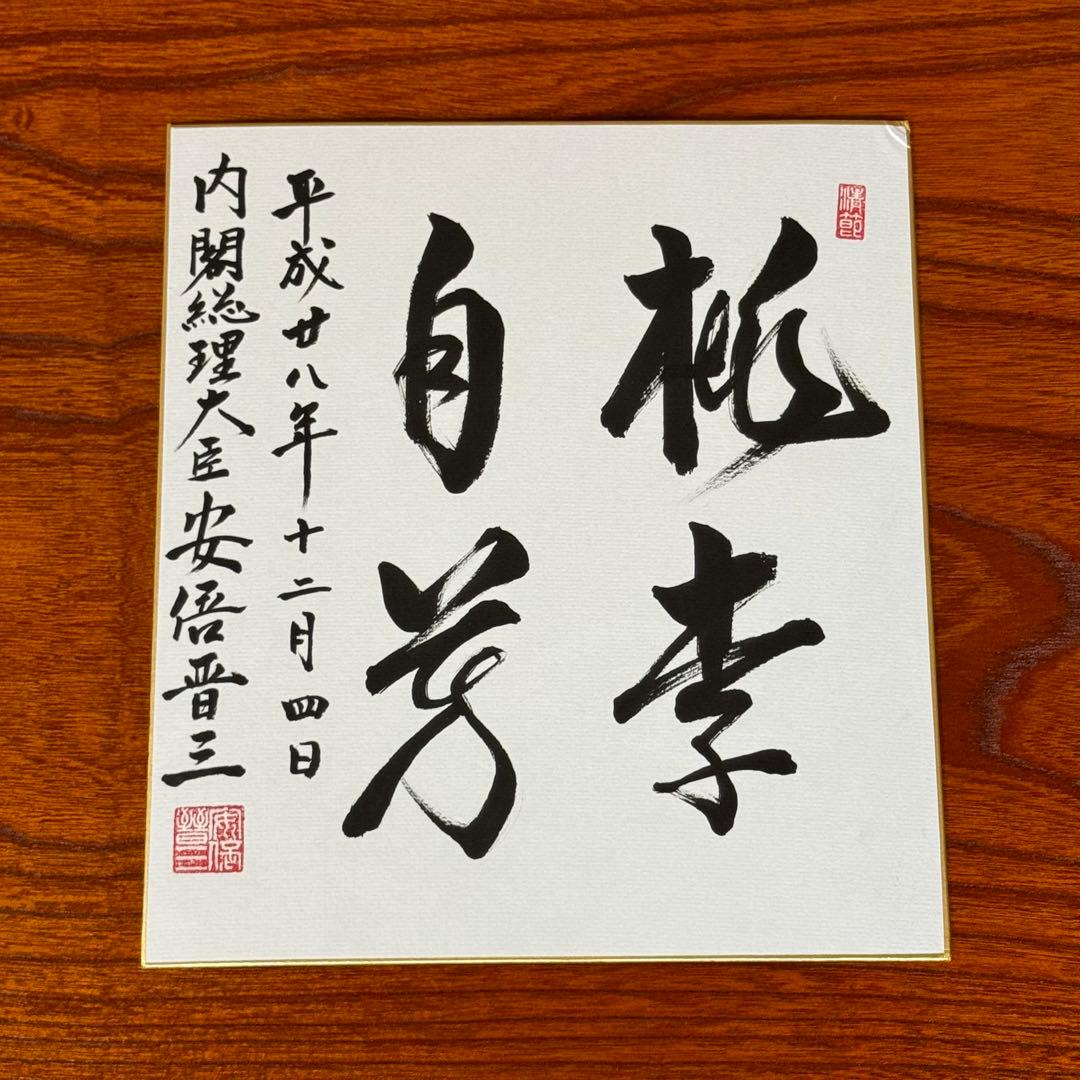 清節
桃李
自芳
平成廿八年十二月四日
内閣総理大臣安倍晋三
安倍
晋三